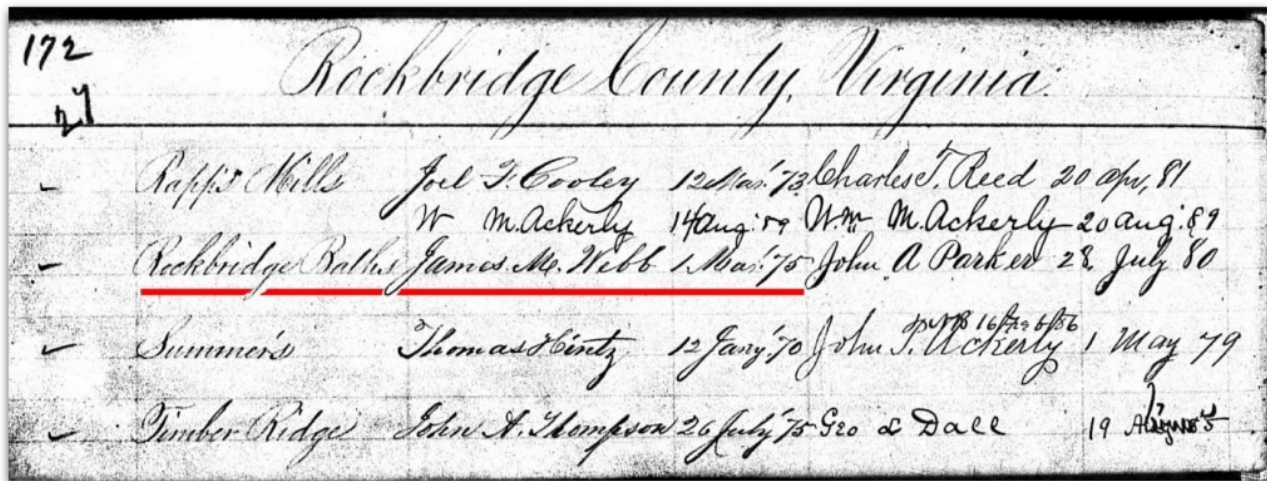 172
27
Rockbridge County, Virginia
Rapp's Mills Joel F. Cooley 12 Mar. '73 Charles T. Reed 20 apr, 81
W M. Ackerly 14 Aug. 79 Wm M. Ackerly 20 aug. 89
Rockbridge Baths James M. Webb 1 Mar. '75 John A Parker 28 July 80
Summers Thomas Hintz 12 Jany. '70 John T. Ackerly 1 May 79
Timber Ridge John A. Thompson 26 July '75 Geo Dall 19